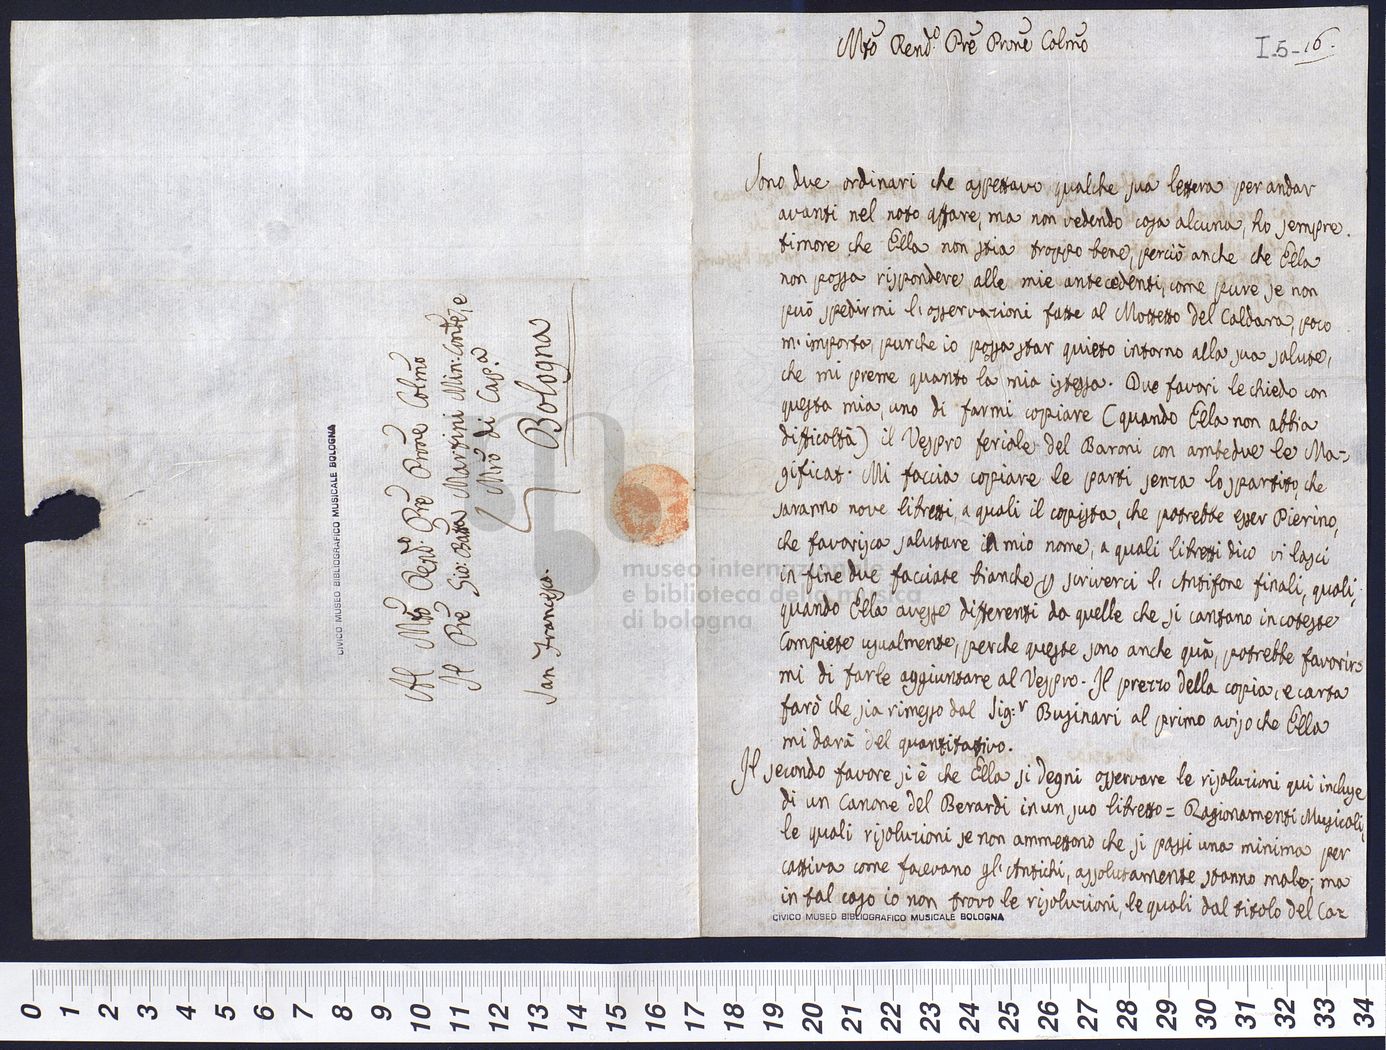 Mto Rendo Pre Prone Colmo
I.5-16.
Sono due ordinari che aspettavo qualche sua lettera per andar
avanti nel noto affare, ma non vedendo cosa alcuna, ho sempre
timore che Ella non stia troppo bene, perciò anche che Ella
non possa rispondere alle mie antecedenti, come pure se non
può spedirmi l'osservazioni fatte al Mottetto del Caldara, poco
m'importa, purche io possa star quieto intorno alla sua salute,
che mi preme quanto la mia istessa. Due favori le chiedo con
questa mia, uno di farmi copiare (quando Ella non abbia
difficoltà) il Vespro feriale del Baroni con ambedue le Ma-
gificat. Mi faccia copiare le parti senza lo spartito, che
saranno nove libretti, a quali il copista, che potrebbe esser Pierino,
che favorisca salutare in mio nome, a quali libretti dico vi lasci
in fine due facciate bianche p scriverci li Antifone finali, quali,
quando Ella avesse differenti da quelle che si cantano in coteste
Compiete usualmente, perche queste sono anche quà, potrebbe favorir
mi di farle aggiuntare al Vespro. Il prezzo della copia, e carta
farò che sia rimesso dal Sig:r Businari al primo aviso che Ella
mi darà del quantitativo.
Il secondo favore si è che Ella si degni osservare le risoluzioni qui incluse
di un Canone del Berardi in un suo libretto = Ragionamenti Musicali,
le quali risoluzioni se non ammettono che si passi una minima per
cattiva come facevano gl'Antichi, assolutamente stanno male; ma
in tal caso io non trovo le risoluzioni, le quali dal titolo del Ca=
CIVICO MUSEO BIBLIOGRAFICO MUSICALE BOLOGNA
Al Mto Rendo Pre Prone Colmo
Il Pre Gio: Batta Martini Min: Conte, e
Mro di Cap.a
Bologna
San Francesco.
CIVICO MUSEO BIBLIOGRAFICO MUSICALE BOLOGNA
museo internazionale
e biblioteca della musica
di bologna
0 1 2 3 4 5 6 7 8 9 10 11 12 13 14 15 16 17 18 19 20 21 22 23 24 25 26 27 28 29 30 31 32 33 34